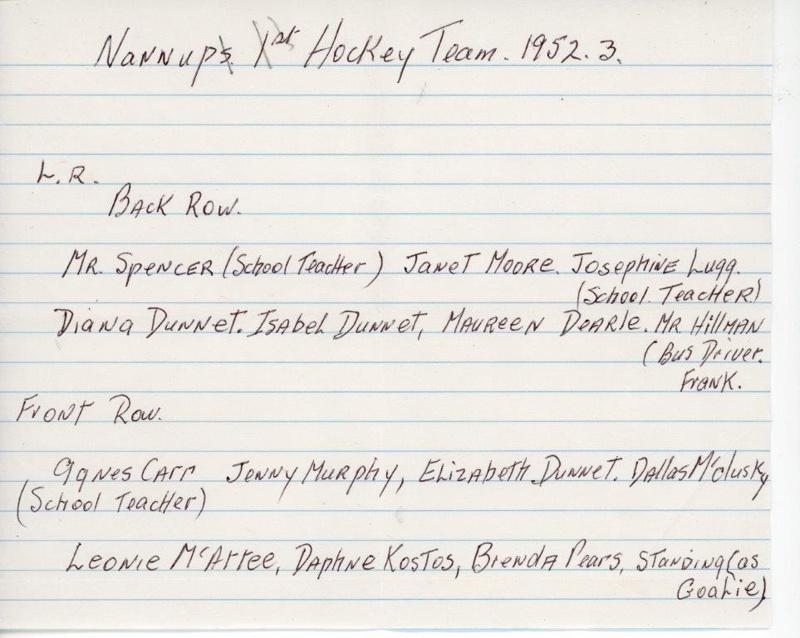 Nannups 1st Hockey Team. 1952.3.
L.R.
Back Row.
Mr. Spencer (School Teacher) Janet Moore. Josephine Lugg.
(School Teacher)
Diana Dunnet. Isabel Dunnet, Maureen Dearle. Mr Hillman
(Bus Driver.
Frank.
Front Row.
Agnes Carr Jenny Murphy, Elizabeth Dunnet. Dallas McClusky
(School Teacher)
Leonie McAttee, Daphne Kostos, Brenda Pears, Standing (as
Goalie)